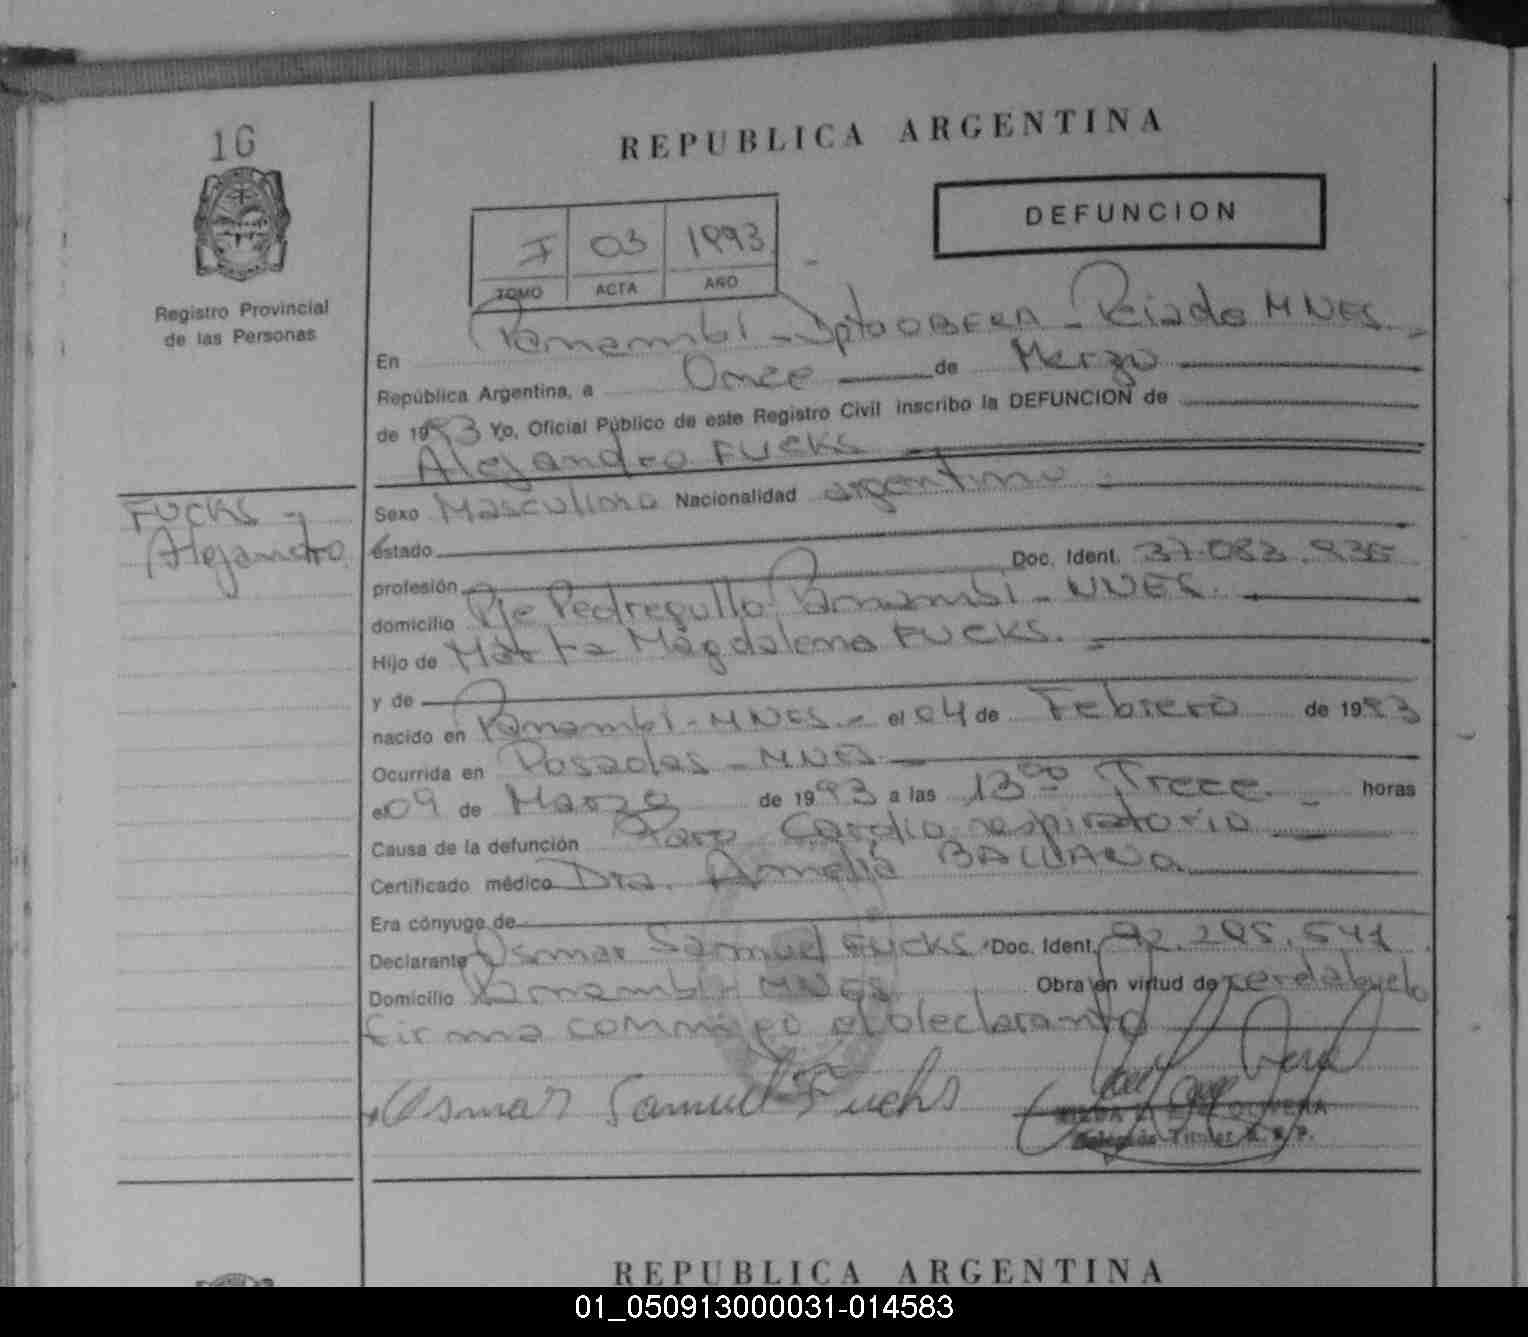 16
REPUBLICA ARGENTINA
DEFUNCION
I 03 1993
TOMO ACTA AÑO
Registro Provincial
de las Personas
En Panambi - Dpto OBERA - Pciade MNES -
República Argentina, a Once de Marzo
de 1993 Yo, Oficial Público de este Registro Civil inscribo la DEFUNCION de
Alejandro FUCKS
FUCKS -
Alejandro
Sexo Masculino Nacionalidad argentino -
estado
Doc. Ident. 37.083.935
profesión
domicilio Pje Pedregullo Panambi - MNES.
Hijo de Marta Magdalena FUCKS.
y de
nacido en Panambi - MNES - el 04 de Febrero de 1993
Ocurrida en Posadas - MNES -
el 09 de Marzo de 1993 a las 13 00 Trece - horas
Causa de la defunción Paro Cardio respiratorio
Certificado médico Dra. Amelia
Era cónyuge de
Declarante Osmar Samuel FUCKS Doc. Ident. 92.295.541
Domicilio Panambi - MNES Obra en virtud de serelabuelo
firma conmigo el declarante
Osmar Samuel Fuchs
REPUBLICA ARGENTINA
01_050913000031-014583